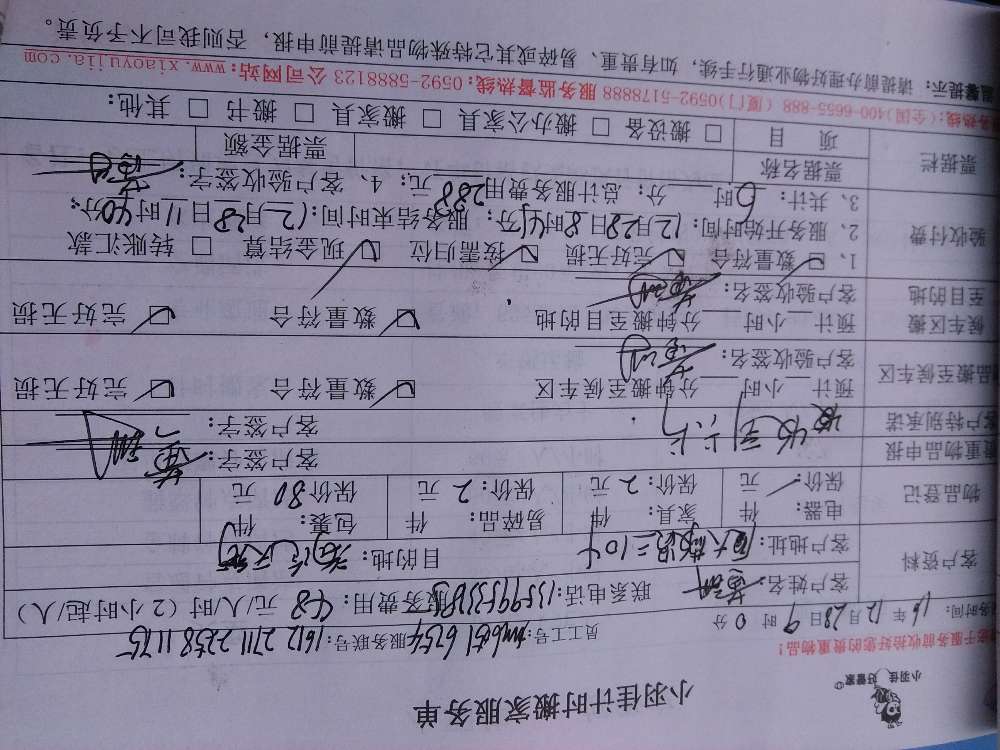 小羽佳 好管家
小羽佳计时搬家服务单
服务前收拾好您的贵重物品!
员工工号: 服务联号:1612 2711 2258 1175
务时间: 16 年 12 月 28 日 9 时 0 分
客户资料
客户姓名: 联系电话: 服务费用: 48 元/人/时(2小时起/人)
客户地址: 目的地:
物品登记
电器: 件 家具: 件 易碎品: 件 包裹: 件
保价: 元 保价: 2 元 保价: 2 元 保价 80 元
贵重物品申报 客户签字:
客户特别承诺 客户签字:
物品搬至候车区
预计 小时 分钟搬至候车区 数量符合 完好无损
客户验收签名:
候车区搬至目的地
预计 小时 分钟搬至目的地 数量符合 完好无损
客户验收签名:
验收付费
1、 数量符合 完好无损 按需归位 现金结算 转账汇款
2、服务开始时间: 12月28日8时 分; 服务结束时间: 12月28日11时40分;
3、共计: 时 分; 总计服务费用 288 元; 4、客户验收签字:
票据栏
票据名称 票据金额
项目 搬设备 搬办公家具 搬家具 搬书 其他:
务热线:(全国)400-6655-888 (厦门)0592-5178888 服务监督热线:0592-5888123 公司网站:www.xiaoyujia.com
温馨提示:请提前办理好物业通行手续,如有贵重、易碎或其它特殊物品请提前申报,否则我司不予负责。